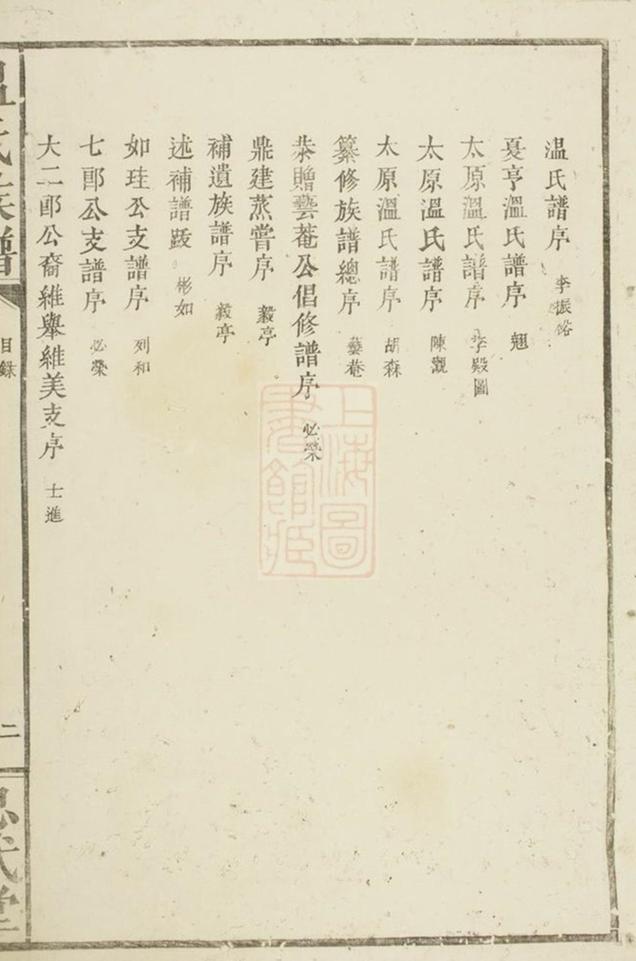 温氏譜序 李振鋊
夏亨溫氏譜序 翹
太原溫氏譜序 李殿圖
太原溫氏譜序 陳觀
太原溫氏譜序 胡森
纂修族譜總序 藝菴
恭贈藝菴公倡修譜序 必榮
鼎建蒸嘗序 毅亭
補遺族譜序 毅亭
述補譜跋 彬如
如珪公支譜序 列和
七郎公支譜序 必榮
大二郎公裔維舉維美支序 士進
目錄
二
上海圖書館藏